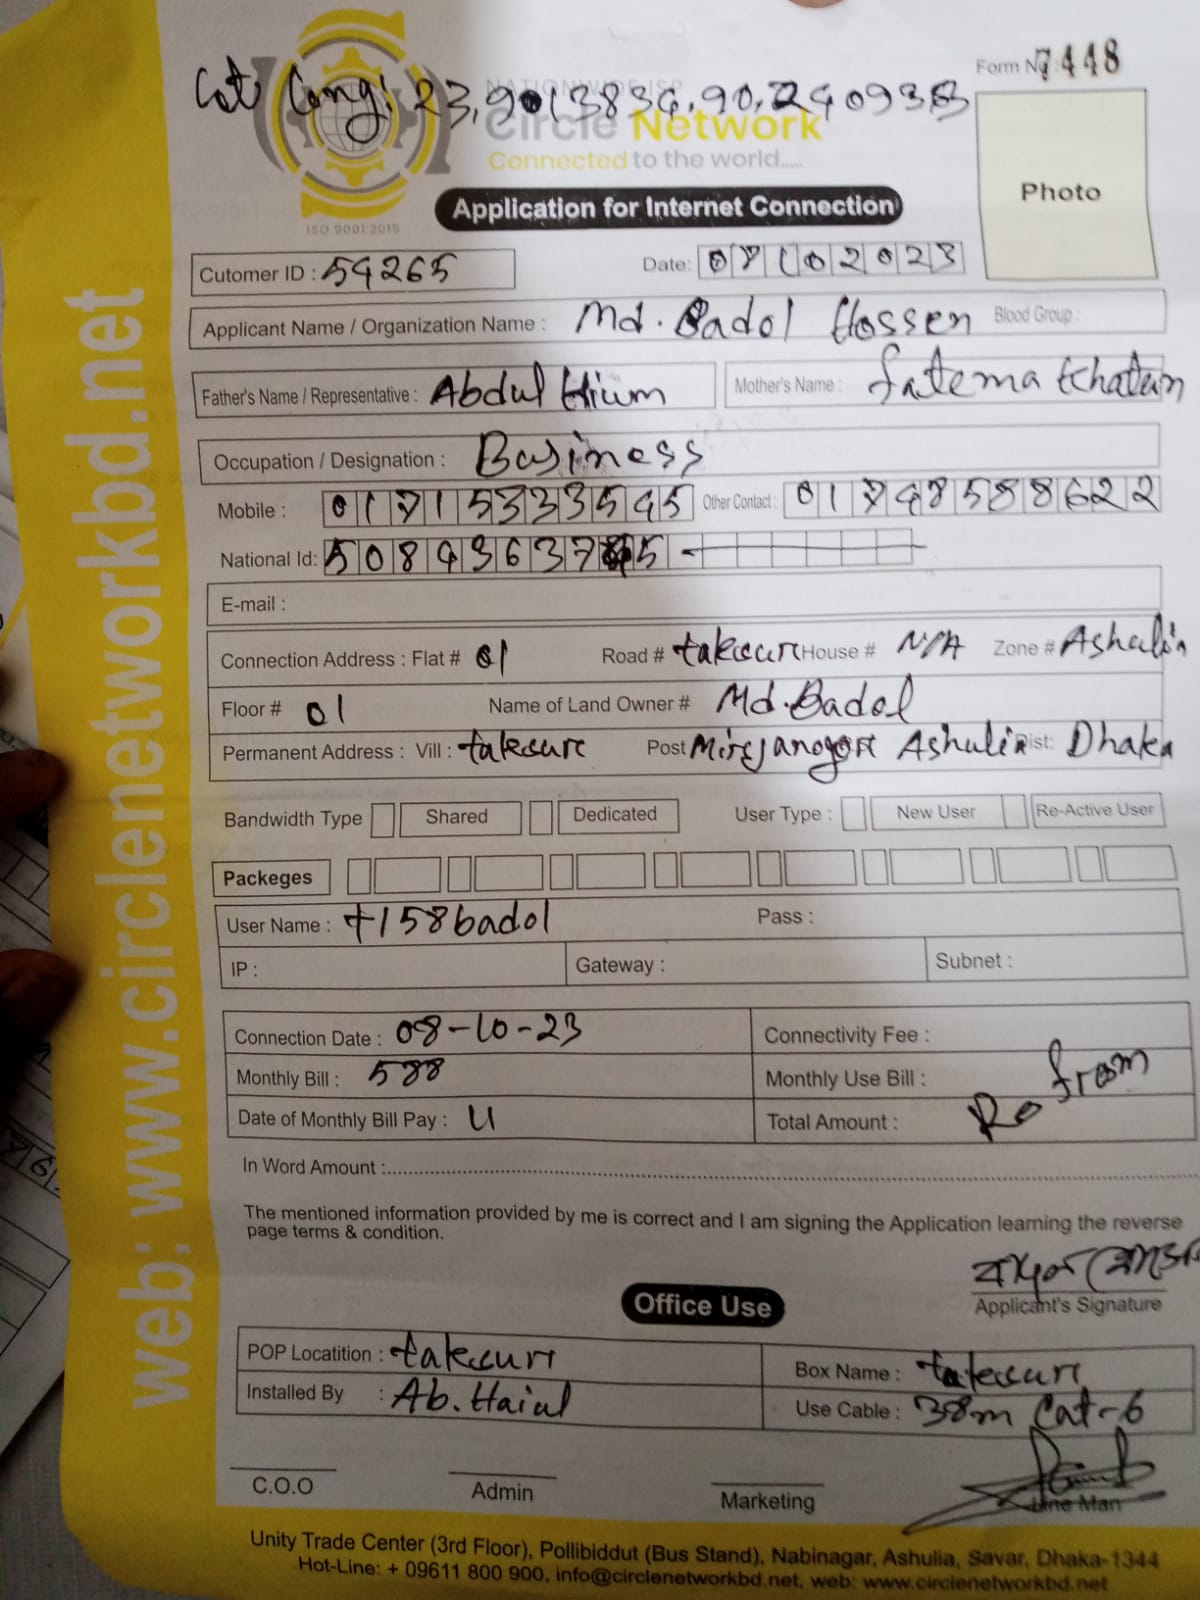 Form No 7448
Lat Long: 23.9013834.90.2409383
NATIONWIDE ISP
Circle Network
Connected to the world.....
ISO 9001:2015
Photo
Application for Internet Connection
Cutomer ID : 59265
Date: 08102023
Applicant Name / Organization Name : Md. Badol Hossen Blood Group :
Father's Name / Representative : Abdul Hium Mother's Name : Fatema Khatun
Occupation / Designation : Business
Mobile : 01715333595 Other Contact : 01798588622
National Id: 508493637 5
E-mail :
Connection Address : Flat # 01 Road # takusure House # N/A Zone # Ashulia
Floor # 01 Name of Land Owner # Md. Badol
Permanent Address : Vill : takusure Post Mirejanogor Ashulia Dist: Dhaka
Bandwidth Type Shared Dedicated User Type : New User Re-Active User
Packeges
User Name : t158badol Pass :
IP : Gateway : Subnet :
Connection Date : 08-10-23 Connectivity Fee :
Monthly Bill : 588 Monthly Use Bill :
Date of Monthly Bill Pay : U Total Amount : Ro from
In Word Amount :
The mentioned information provided by me is correct and I am signing the Application learning the reverse
page terms & condition.
Applicant's Signature
Office Use
POP Locatition : takusure Box Name : takusure
Installed By : Ab. Haiul Use Cable : 38m Cat-6
C.O.O Admin Marketing Line Man
Unity Trade Center (3rd Floor), Pollibiddut (Bus Stand), Nabinagar, Ashulia, Savar, Dhaka-1344
Hot-Line: + 09611 800 900, info@circlenetworkbd.net, web: www.circlenetworkbd.net
web: www.circlenetworkbd.net